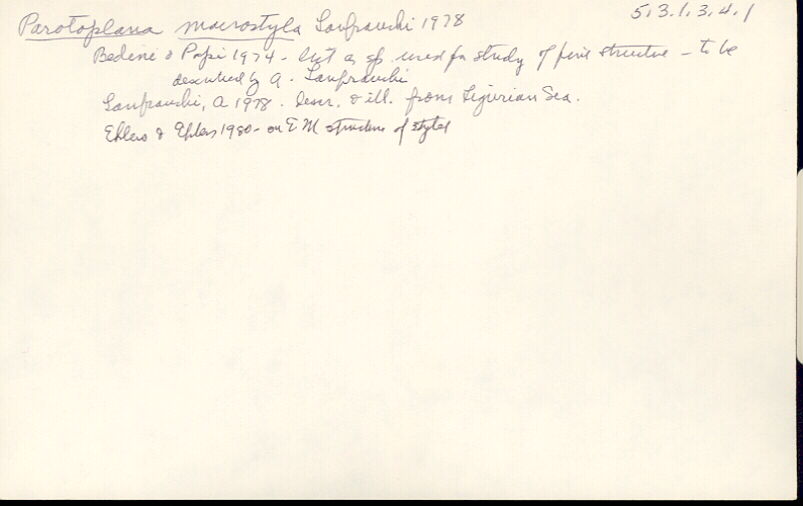 Parotoplana macrostyla Lanfranchi 1978
5.3.1.3.4.1
Bedini & Papi 1974 - list as sp. used for study of fine structure - to be
described by A. Lanfranchi
Lanfranchi, A 1978. Descr. & ill. from Ligurian Sea.
Ehlers & Ehlers 1980 - on EM structure of stylet